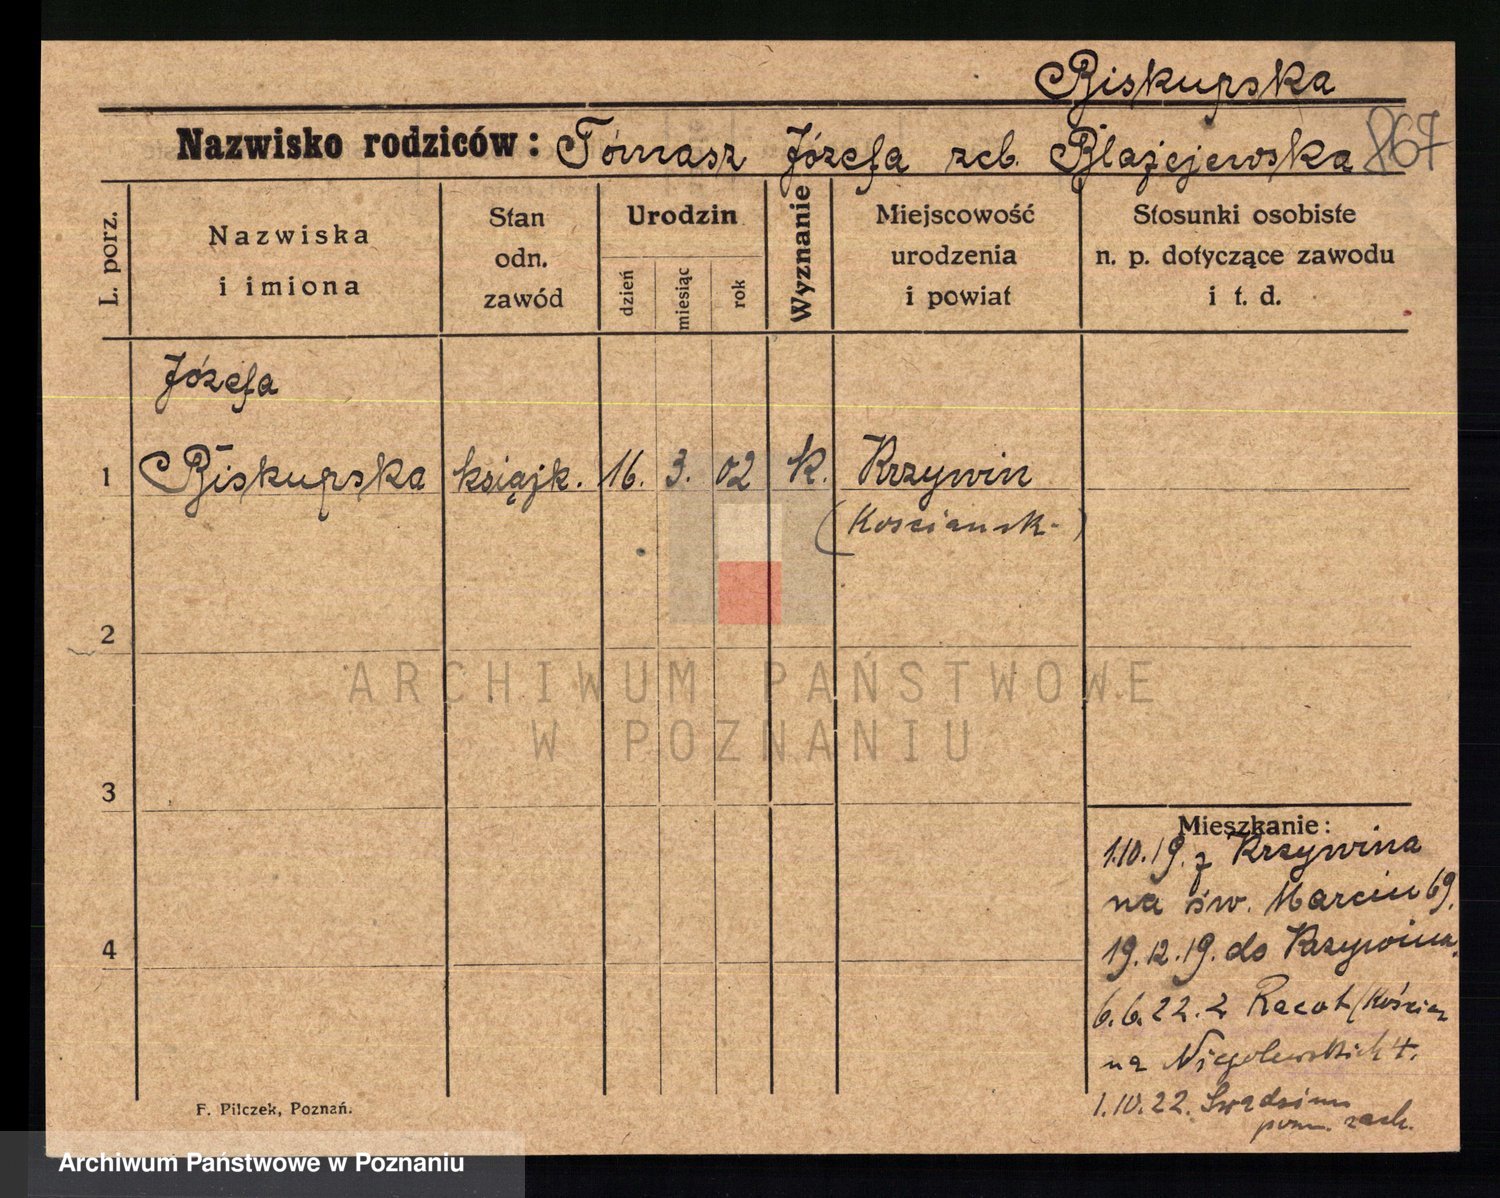 Biskupska
Nazwisko rodziców: Tomasz Józefa Błażejewska 867
L. porz.
Nazwiska
i imiona
Stan
odn.
zawód
Urodzin
dzień
miesiąc
rok
Wyznanie
Miejscowość
urodzenia
i powiat
Stosunki osobiste
n. p. dotyczące zawodu
i t. d.
Józefa
1 Biskupska książk. 16. 3. 02 k. Krzywin
(Kościańsk-)
2
ARCHIWUM PAŃSTWOWE
W POZNANIU
3
Mieszkanie:
1.10.19. z Krzywina
na św. Marcin 69.
19.12.19. do Krzywina.
4
6.6.22. z Racot (Kościan
na Niegolewskich 4.
1.10.22. Swadzim
pow. zach.
F. Pilczek, Poznań.
Archiwum Państwowe w Poznaniu